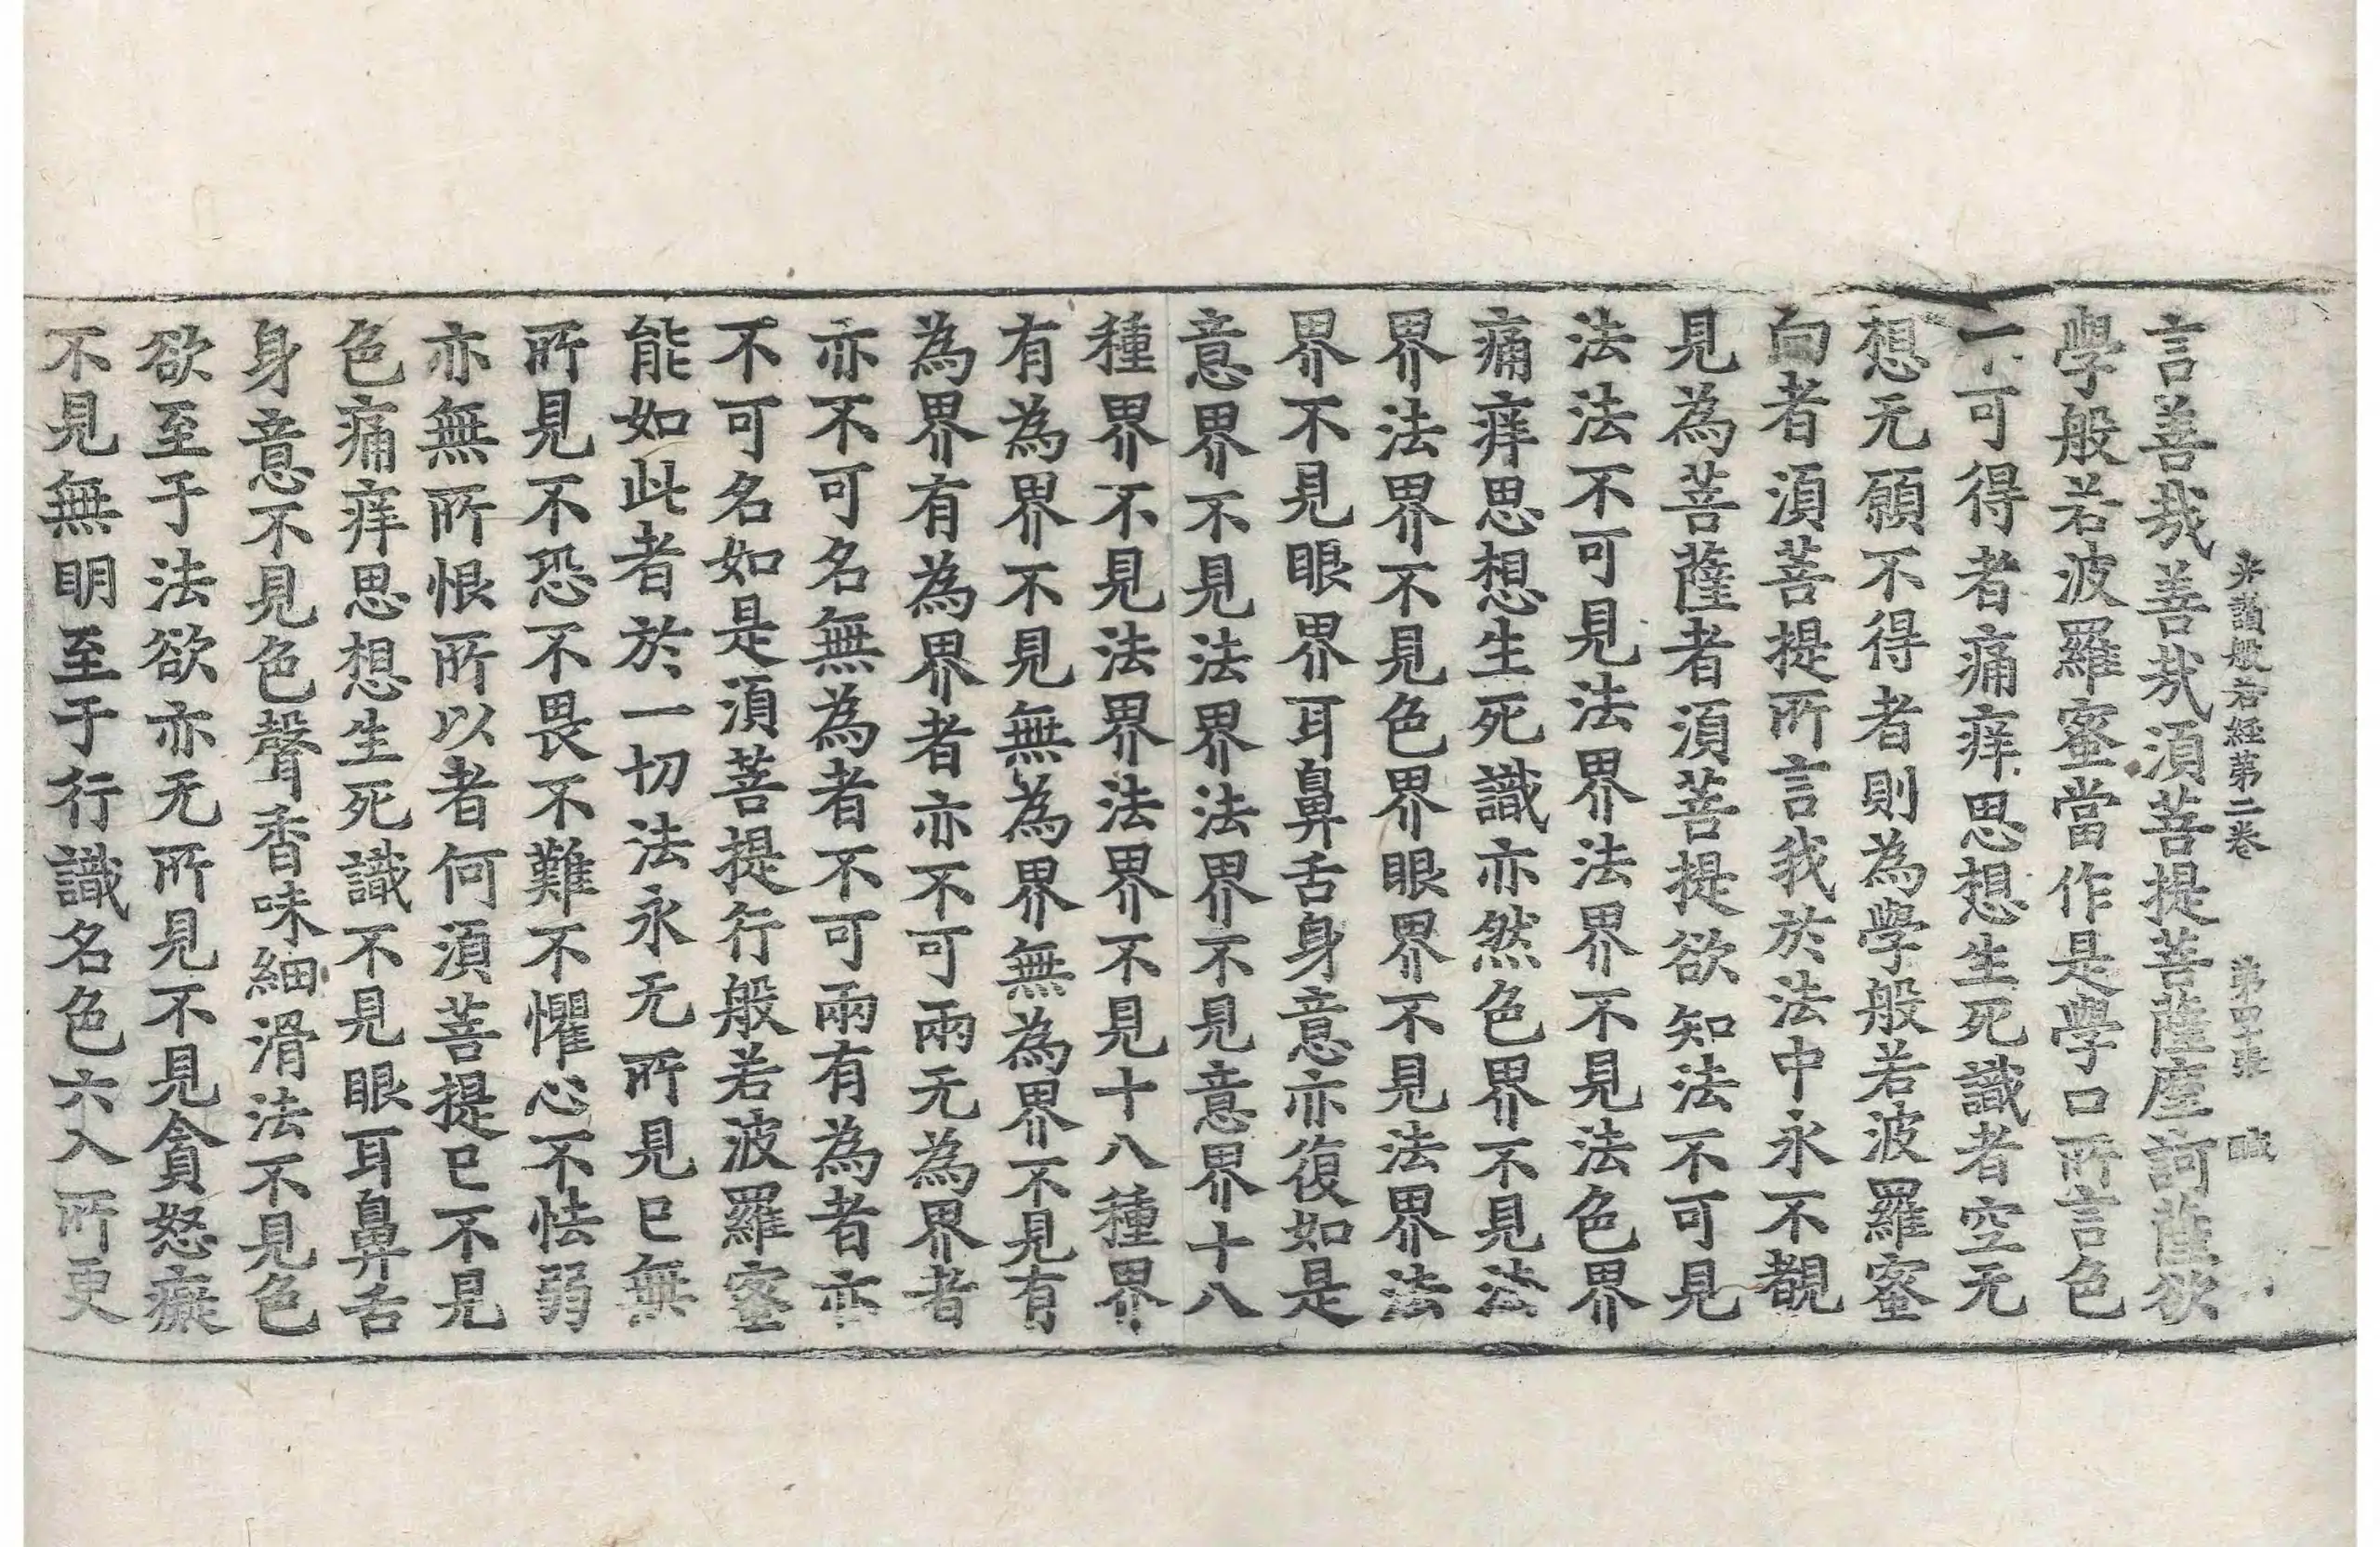 光讚般若経第二卷 第四張 鹹
言善哉善哉湏菩提菩薩摩訶薩欲
學般若波羅蜜當作是學口所言色
一可得者痛痒思想生死識者空无
想无願不得者則為學般若波羅蜜
向者湏菩提所言我於法中永不覩
見為菩薩者湏菩提欲知法不可見
法法不可見法界法界不見法色界
痛痒思想生死識亦然色界不見法
界法界不見色界眼界不見法界法
界不見眼界耳鼻舌身意亦復如是
意界不見法界法界不見意界十八
種界不見法界法界不見十八種界
有為界不見無為界無為界不見有
為界有為界者亦不可兩无為界者
亦不可名無為者不可兩有為者亦
不可名如是湏菩提行般若波羅蜜
能如此者於一切法永无所見已無
所見不恐不畏不難不懼心不怯弱
亦無所恨所以者何湏菩提已不見
色痛痒思想生死識不見眼耳鼻舌
身意不見色聲香味細滑法不見色
欲至于法欲亦无所見不見貪怒癡
不見無明至于行識名色六入所更